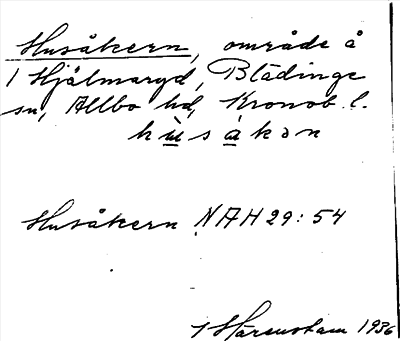 Husåkern, område å
1 Hjälmaryd, Blädinge
sn, Allbo hd, Kronob. l.
hùsákɘn
Husåkern NAH 29:54
Härensham 1936